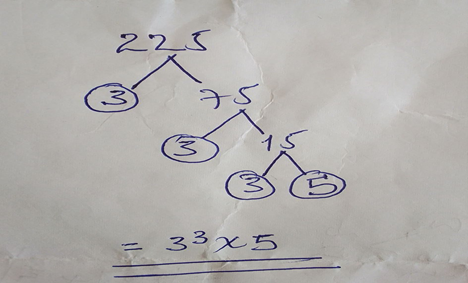 225
3 75
3 15
3 5
= 3³ x 5